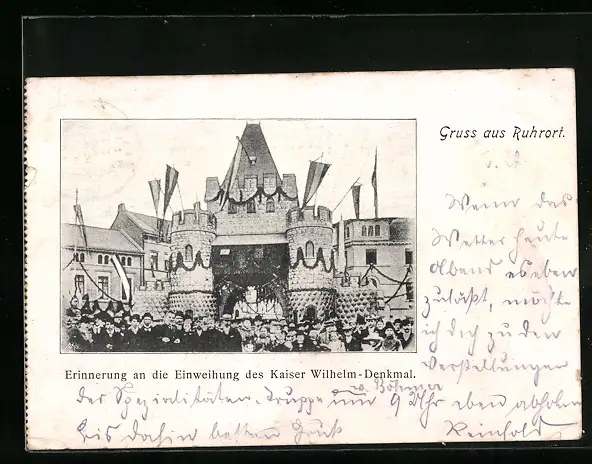 Gruss aus Ruhrort.
Wenn das
Wetter heute
abend es eben
zuläßt, möchte
ich dich zu den
Vorstellungen
Erinnerung an die Einweihung des Kaiser Wilhelm-Denkmal.
v. Böhmer
der Spezialitäten-Truppe um 9 Uhr eben abholen
Bis dahin besten Gruß
Reinhold